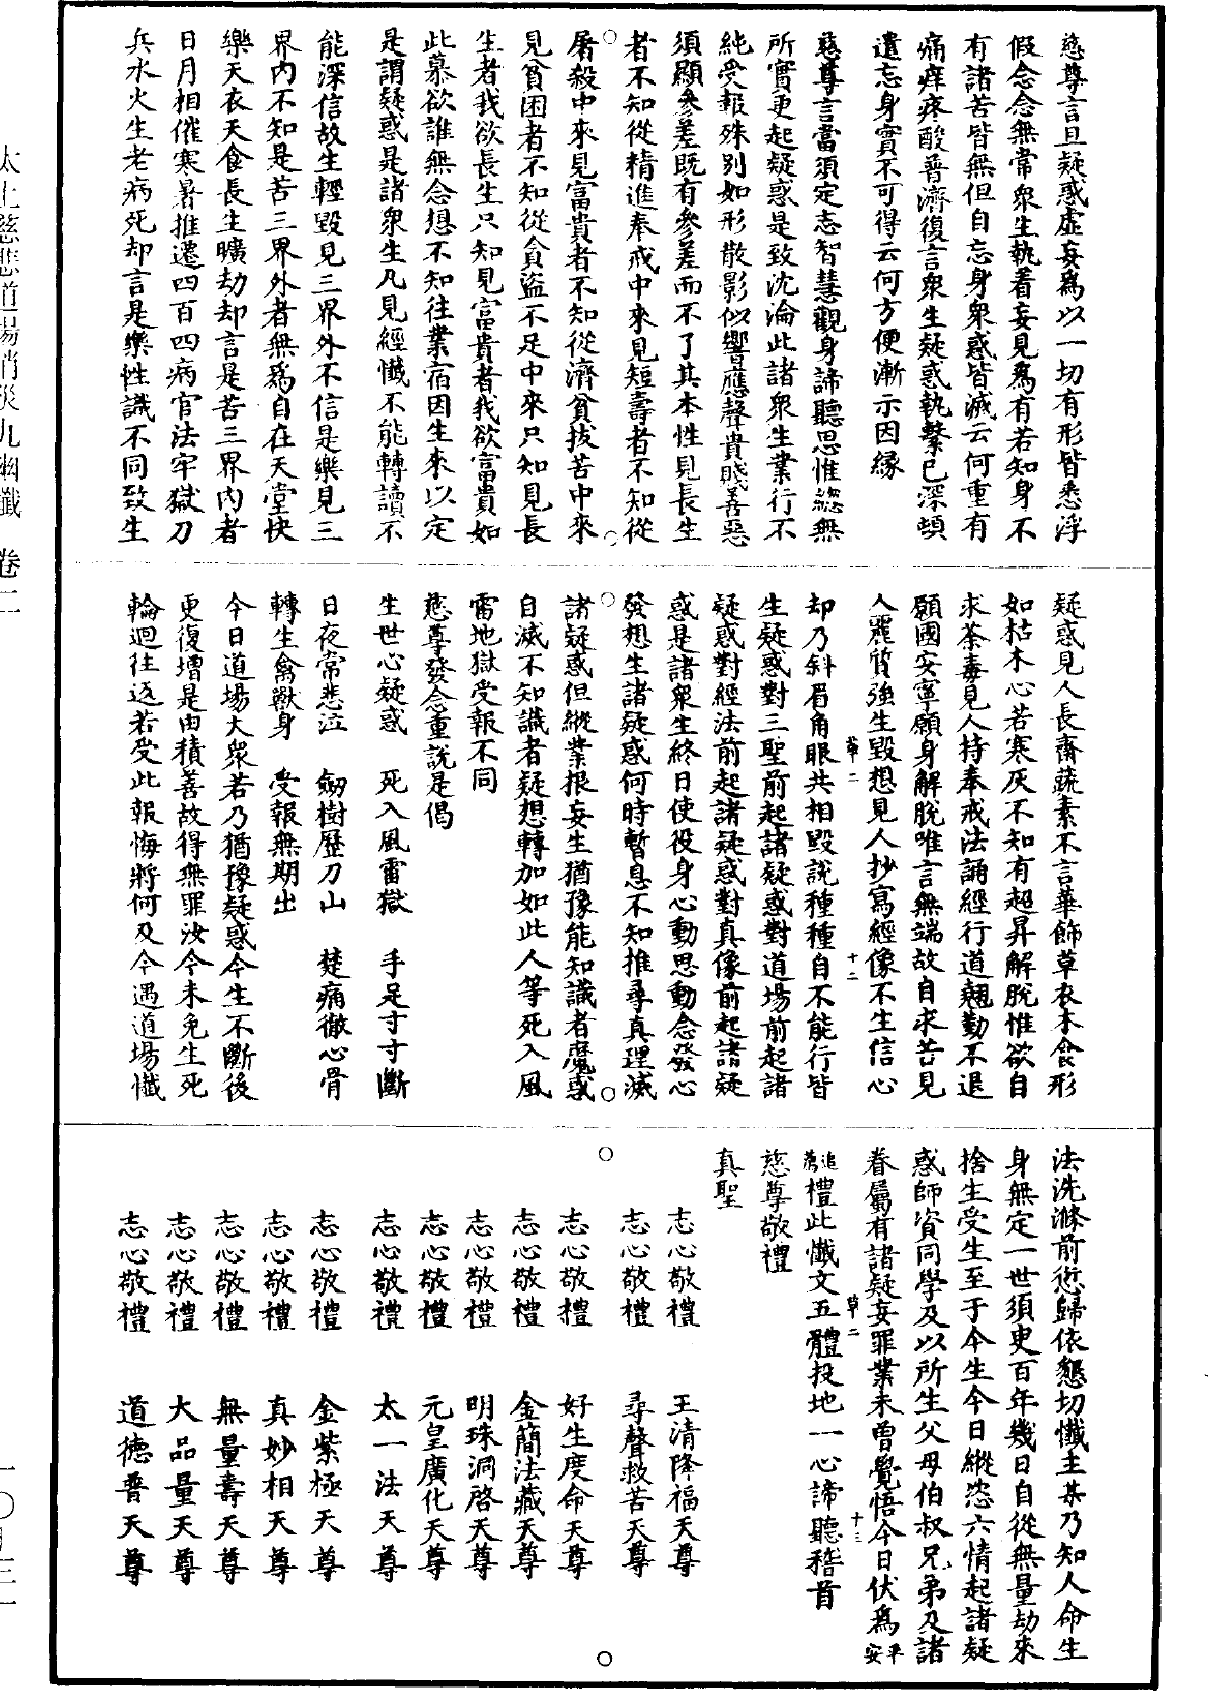 慈尊言且疑惑虛妄爲以一切有形皆悉浮
假念念無常衆生執着妄見爲有若知身不
有諸苦皆無但自忘身衆惑皆滅云何重有
痛痒疼酸普濟復言衆生疑惑執繫已深頓
遣忘身實不可得云何方便漸示因緣
慈尊言當須定志智慧觀身諦聽思惟總無
所實更起疑惑是致沈淪此諸衆生業行不
純受報殊別如形散影似響應聲貴賤善惡
須顯參差既有參差而不了其本性見長生
者不知從精進奉戒中來見短壽者不知從
屠殺中來見富貴者不知從濟貧拔苦中來
見貧困者不知從貪盜不足中來只知見長
生者我欲長生只知見富貴者我欲富貴如
此慕欲誰無念想不知往業宿因生來以定
是謂疑惑是諸衆生凡見經懺不能轉讀不
能深信故生輕毀見三界外不信是樂見三
界內不知是苦三界外者無爲自在天堂快
樂天衣天食長生曠劫却言是苦三界內者
日月相催寒暑推遷四百四病官法牢獄刀
兵水火生老病死却言是樂性識不同致生
疑惑見人長齋蔬素不言華飾草衣木食形
如枯木心若寒灰不知有超昇解脫惟欲自
求荼毒見人持奉戒法誦經行道翹勤不退
願國安寧願身解脫唯言無端故自求苦見
人罷質強生毀想見人抄寫經像不生信心
草二 十二
却乃斜眉角眼共相毀說種種自不能行皆
生疑惑對三聖前起諸疑惑對道場前起諸
疑惑對經法前起諸疑惑對真像前起諸疑
惑是諸衆生終日使役身心動思動念發心
發想生諸疑惑何時暫息不知推尋真理滅
諸疑惑但縱業根妄生猶豫能知識者魔惑
自滅不知識者疑想轉加如此人等死入風
雷地獄受報不同
慈尊發念重說是偈
生世心疑惑 死入風雷獄 手足寸寸斷
日夜常悲泣 劒樹歷刀山 楚痛徹心骨
轉生禽獸身 受報無期出
今日道場大衆若乃猶豫疑惑今生不斷後
更復增是由積善故得無罪汝今未免生死
輪迴往返若受此報悔將何及今遇道場懺
法洗滌前愆歸依懇切懺主某乃知人命生
身無定一世須臾百年幾日自從無量劫來
捨生受生至于今生今日縱恣六情起諸疑
惑師資同學及以所生父母伯叔兄弟及諸
眷屬有諸疑妄罪業未曾覺悟今日伏爲平安
草二 十三
追薦禮此懺文五體投地一心諦聽稽首
慈尊敬禮
真聖
志心敬禮 王清降福天尊
志心敬禮 尋聲救苦天尊
志心敬禮 好生度命天尊
志心敬禮 金簡法藏天尊
志心敬禮 明珠洞啓天尊
志心敬禮 元皇廣化天尊
志心敬禮 太一法天尊
志心敬禮 金紫極天尊
志心敬禮 真妙相天尊
志心敬禮 無量壽天尊
志心敬禮 大品量天尊
志心敬禮 道德普天尊
太上慈悲道場消災九幽懺 卷二